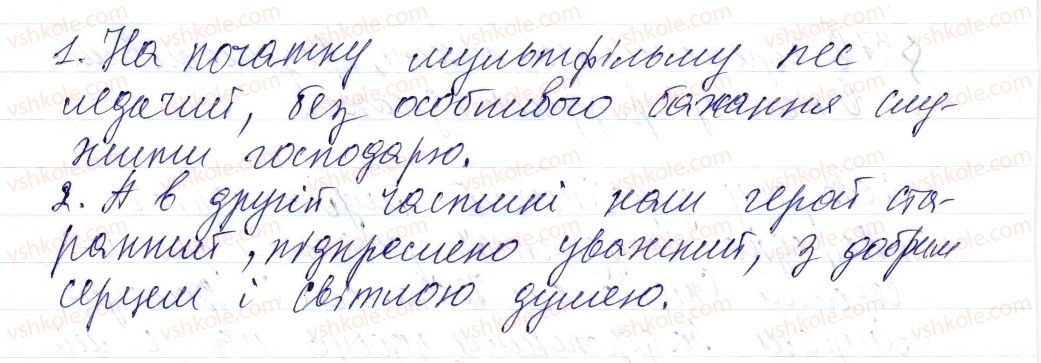 1. На початку мультфільму пес
ледачий, без особливого бажання слу-
жити господарю.
2. А в другій частині наш герой ста-
ранний, підкреслено уважний, з добрим
серцем і світлою душею.